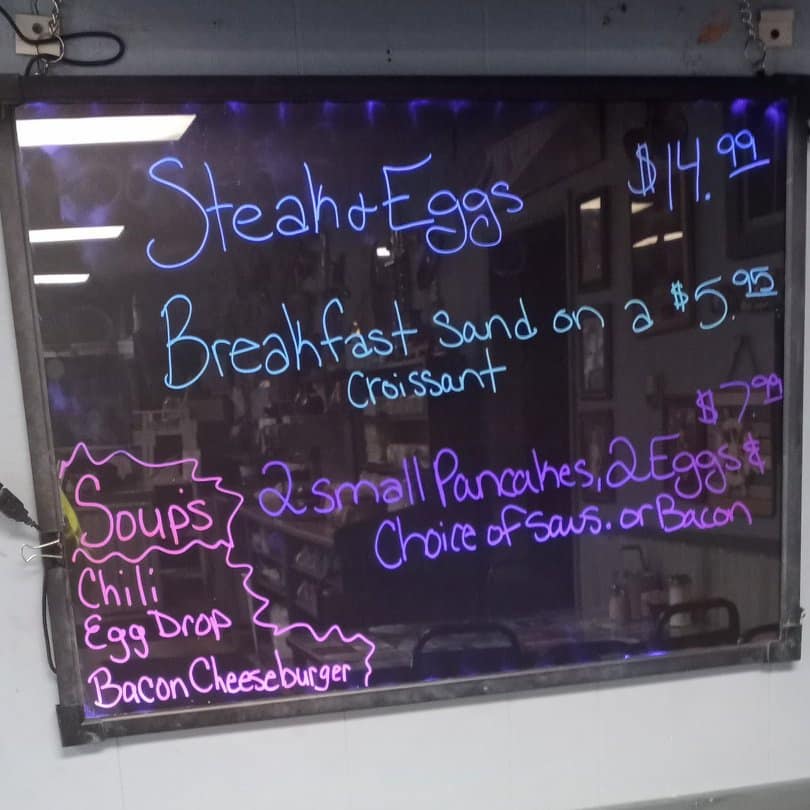 Steak & Eggs $14.99
Breakfast Sand on a $5.95
Croissant
$7.99
2 small Pancakes, 2 Eggs &
Choice of Saus. or Bacon
Soup's
Chili
Egg Drop
Bacon Cheeseburger